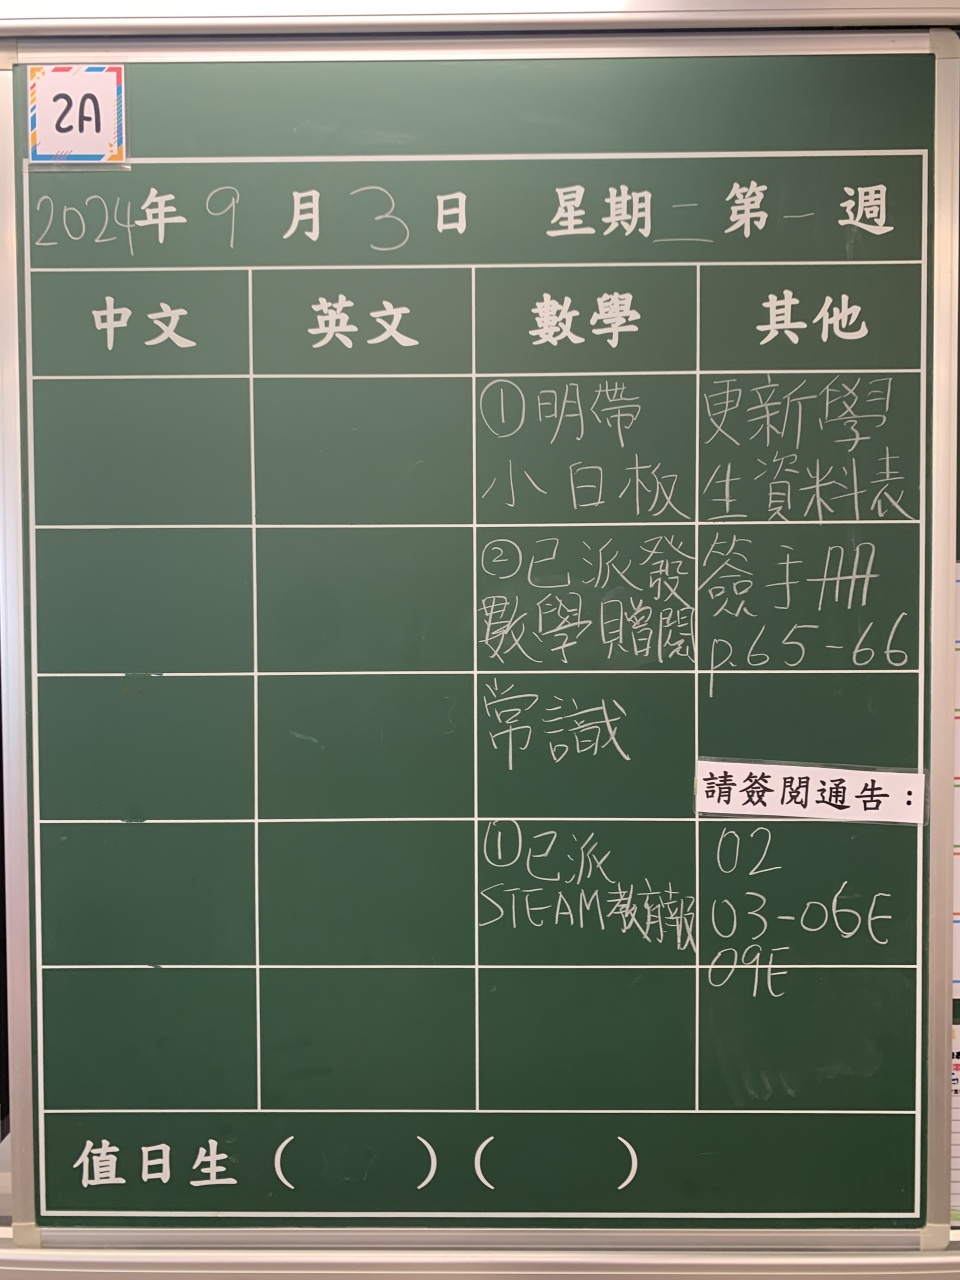 2A
2024年9月3日 星期二第一週
中文 英文 數學 其他
①明帶
小白板
②已派發
數學贈閱
常識
①已派
STEAM教育報
更新學
生資料表
簽手冊
p.65-66
請簽閱通告：
02
03-06E
09E
值日生（ ）（ ）